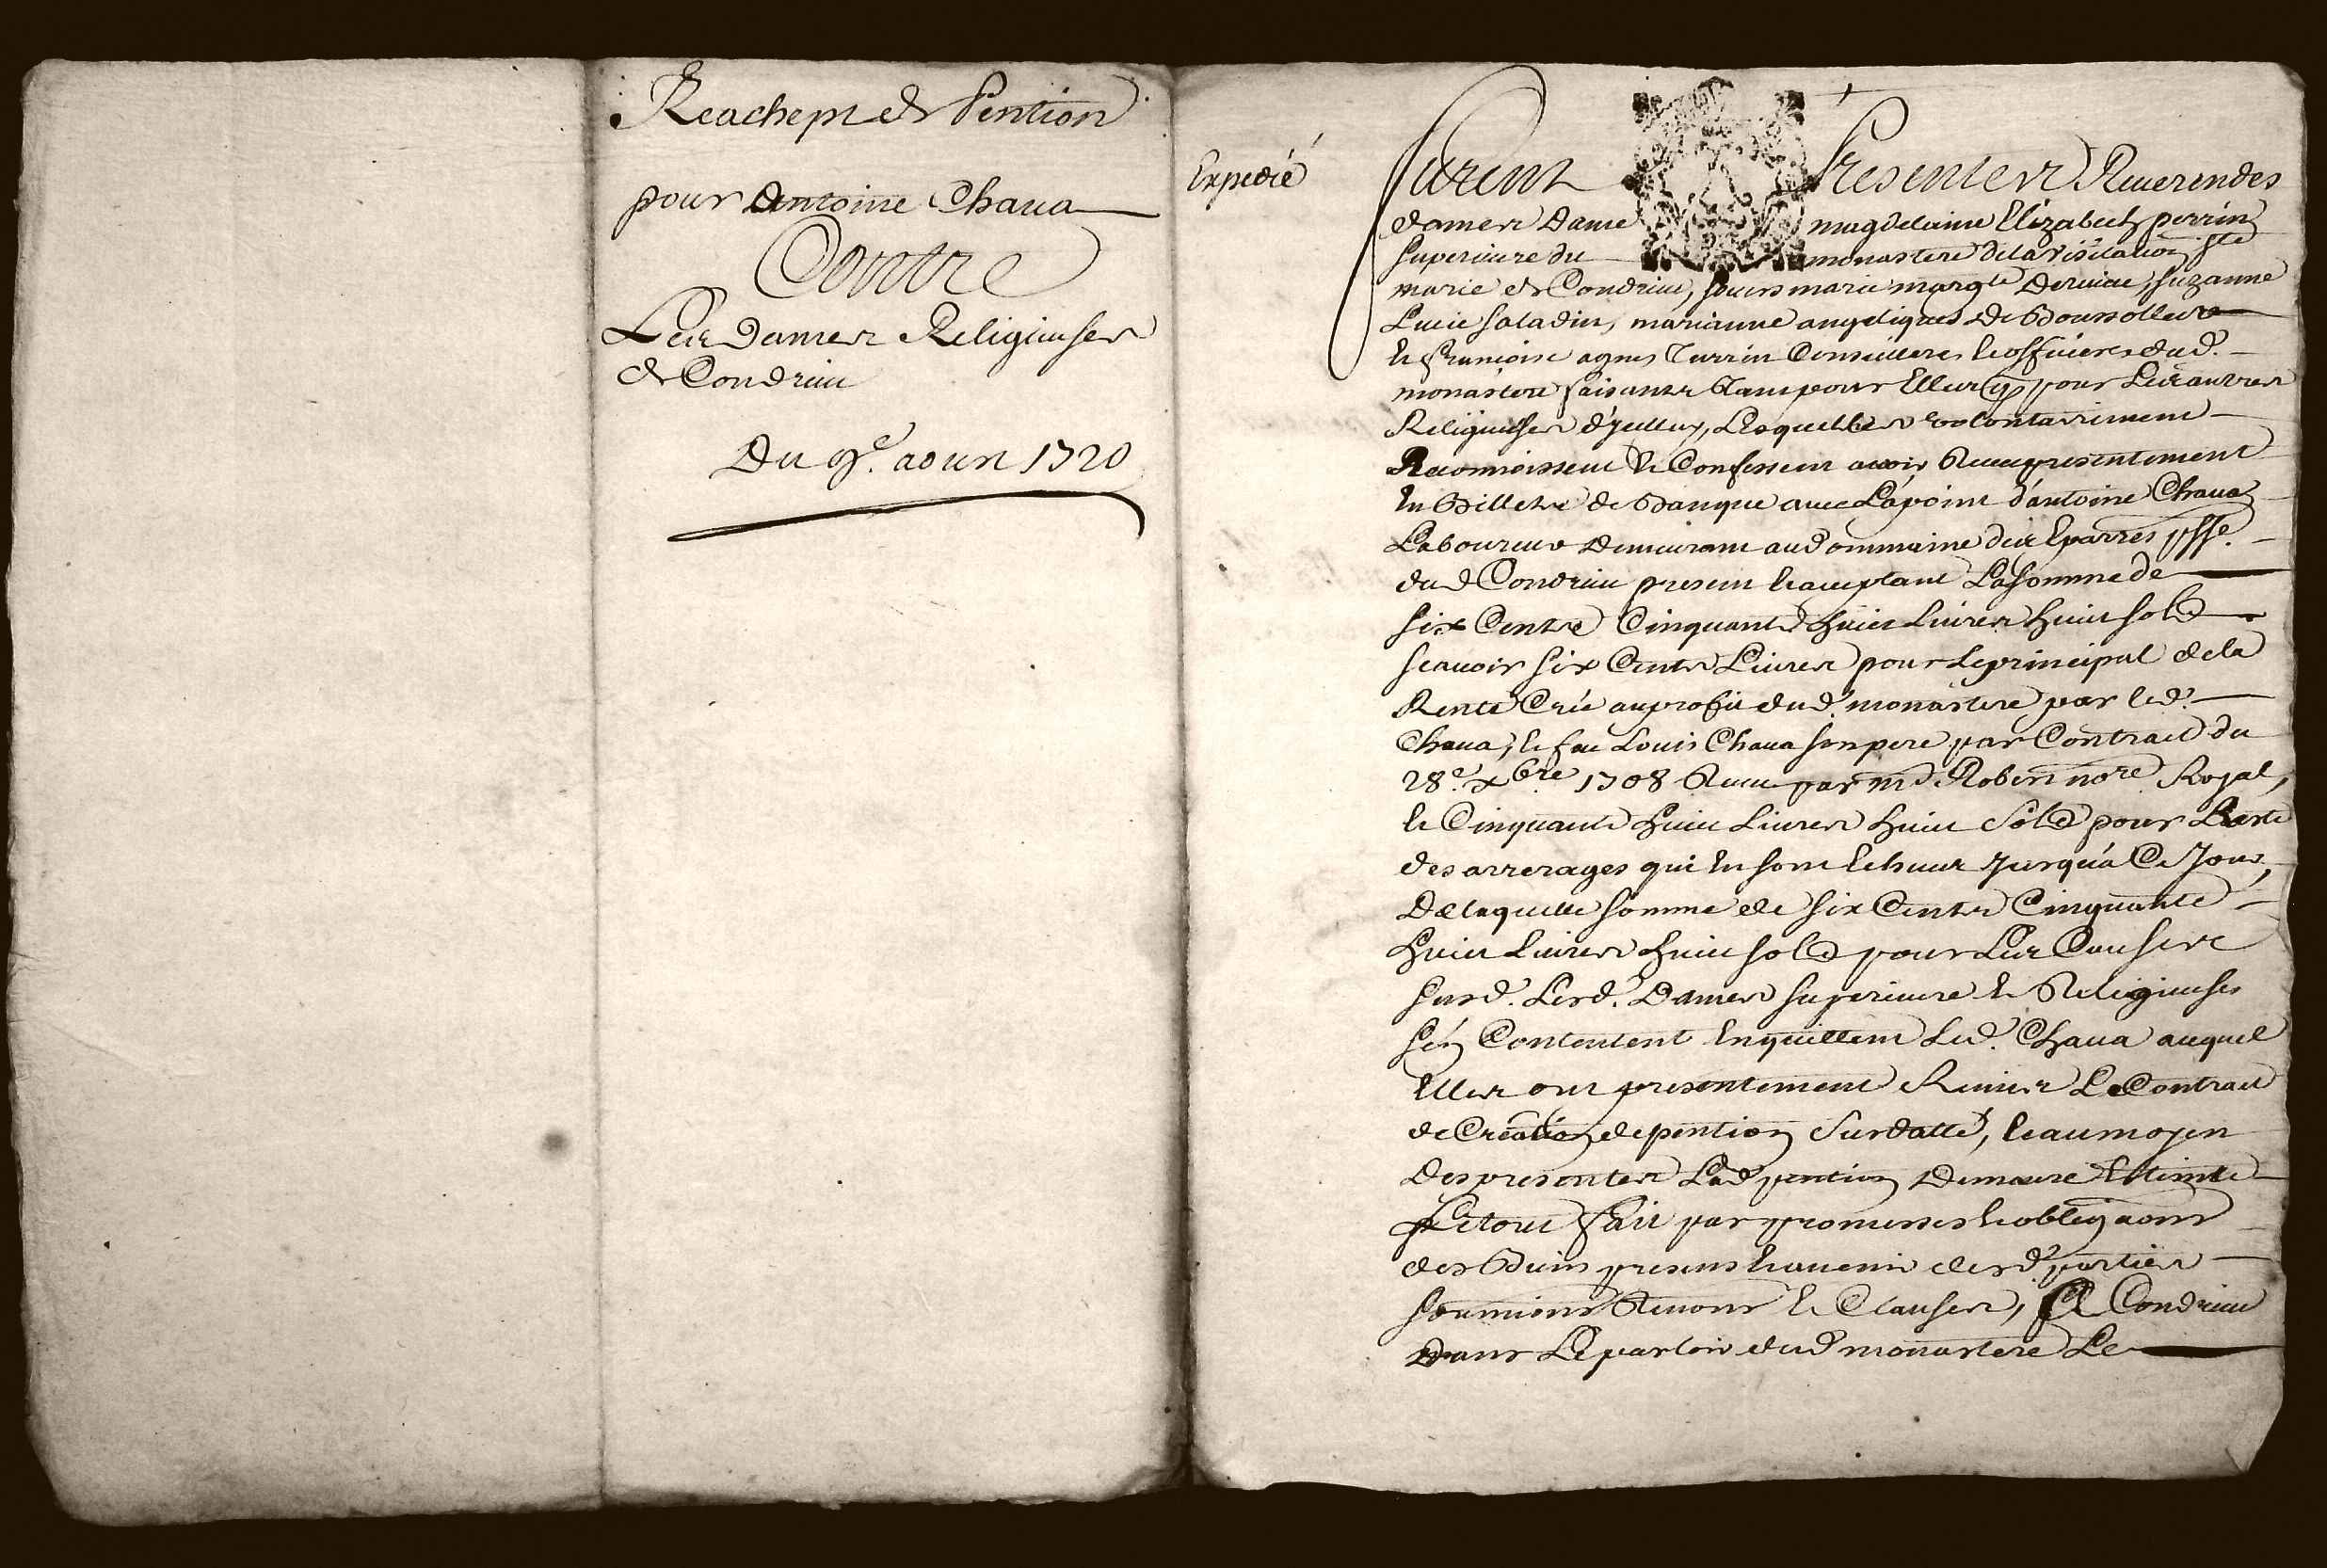 Reachept de Pention
pour Antoine Chaua
Contre
Les Dames Religieuses
de Condrieu
Du 9e. aoust 1720
Expedié
Furent Presentes Reuerendes
dames Dame magdelaine Elizabeth perrin
superieure du monastere de la visitation ste
marie de Condrieu, soeurs marie margte Deruieu, suzanne
Lucie saladin, marianne angelique de
et françoise agnes Turrin Conseilleres et officieres dud.
monastere faisants tant pour Elles que pour Les autres
Religieuses d'yeelluy, Lesquelles volontairement
Reconnoissent et Confessent auoir Receu presentement
en Billets de Banque auec L'apoint d'antoine Chaua
Laboureur demeurant au dommaine des Eparres psse.
dud Condrieu present et aceptant La somme de
six Cents Cinquante huict Liures huict sols
scauoir six Cents Liures pour le principal de la
Rente Créé au profit dud. monastere par led.
Chaua, et feu Louis Chaua son pere par Contract du
28e. xbre 1708 Receu par md. Robert nore Royal,
et Cinquante huict Liures huict sols pour Reste
des arrerages qui en sont Echeus jusqu'a Ce jour,
De laquelle somme de six Cents Cinquante
huict Liures huict sols pour Les Causes
susd. Lesd. Dames superieure et Religieuses
s'en Contentent en quittent Led. Chaua auquel
Elles ont presentement Remis Le Contract
de Creation de pention susdatté, et au moyen
des presentes Lad pention demeure Esteinte
Le tout fait par promesses et obligaons
des Biens presens et auenir desd. parties
soumions Renons et Clauses, A Condrieu
Dans Le parloir dud monastere Le